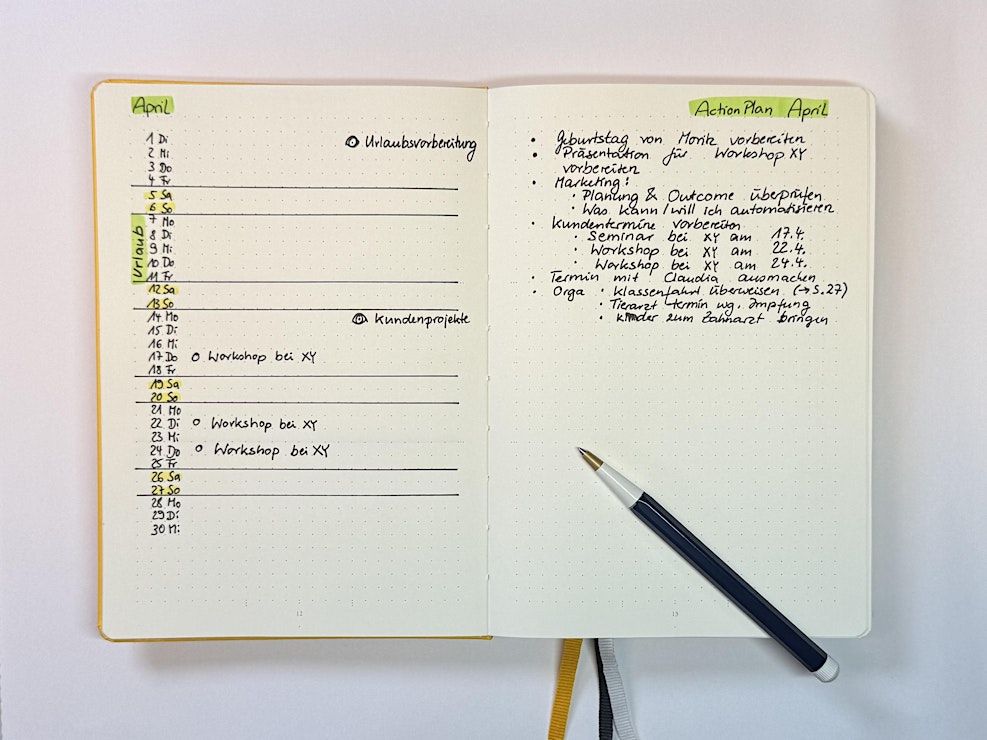 April
1 Di
2 Mi
3 Do
4 Fr
5 Sa
6 So
7 Mo
8 Di
9 Mi
10 Do
11 Fr
12 Sa
13 So
14 Mo
15 Di
16 Mi
17 Do Workshop bei XY
18 Fr
19 Sa
20 So
21 Mo
22 Di Workshop bei XY
23 Mi
24 Do Workshop bei XY
25 Fr
26 Sa
27 So
28 Mo
29 Di
30 Mi
Urlaub
Urlaubsvorbereitung
Kundenprojekte
12
Action Plan April
• Geburtstag von Moritz vorbereiten
• Präsentation für Workshop XY
vorbereiten
• Marketing:
• Planung & Outcome überprüfen
• Was kann/will ich automatisieren
• Kundentermine vorbereiten
• Seminar bei XY am 17.4.
• Workshop bei XY am 22.4.
Workshop bei XY am 24.4.
• Termin mit Claudia ausmachen
• Orga: Klassenfahrt überweisen (→S.27)
• Tierarzt Termin wg. Impfung
• Kinder zum Zahnarzt bringen
13